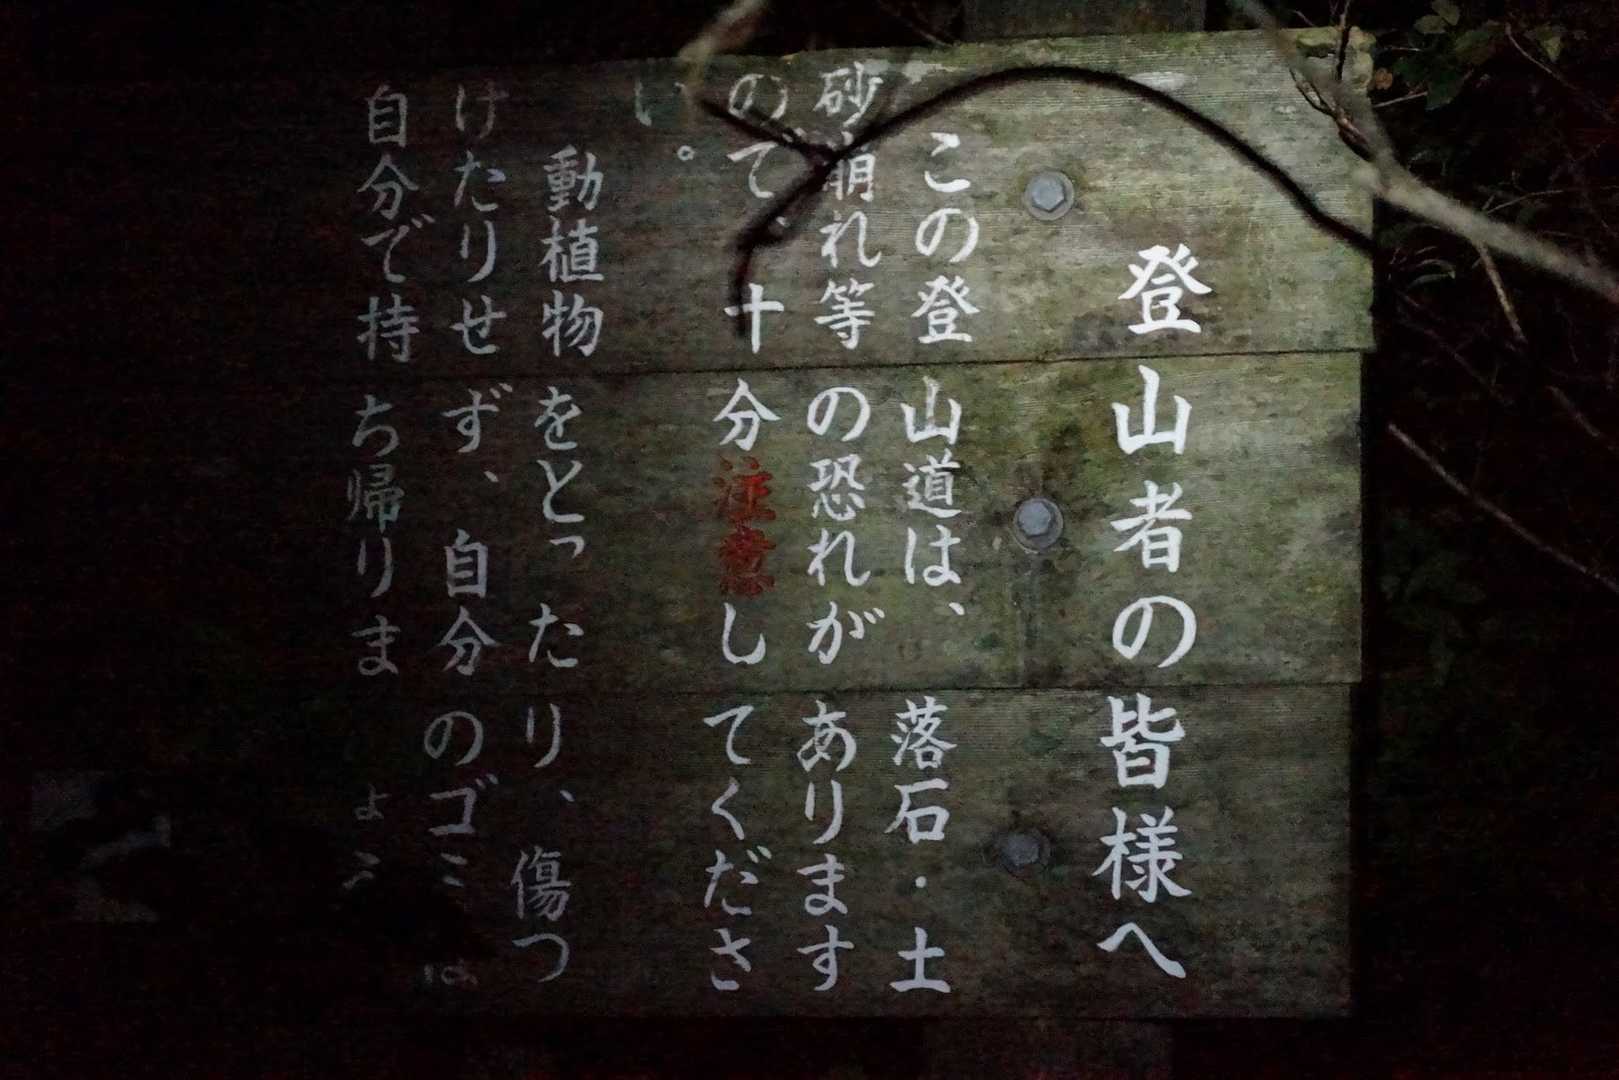 登山者の皆様へ
この登山道は、落石・土
砂崩れ等の恐れがあります
ので、十分注意してくださ
い。
動植物をとったり、傷つ
けたりせず、自分のゴミは
自分で持ち帰りましょう